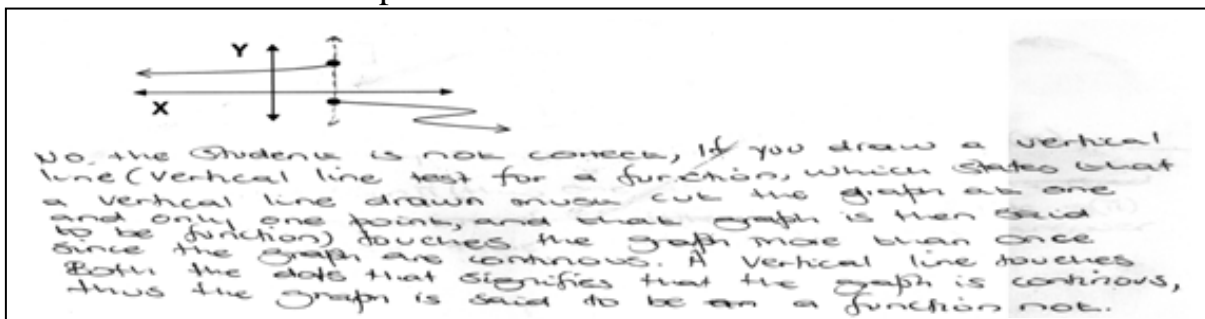 Y
X
No, the Student is not correct, If you draw a vertical
line (vertical line test for a function, which states that
a vertical line drawn must cut the graph at one
and only one point, and that graph is then said
to be function) touches the graph more than once
since the graph are continous. A vertical line touches
Both the dots that signifies that the graph is continious,
thus the graph is said to be a function not.